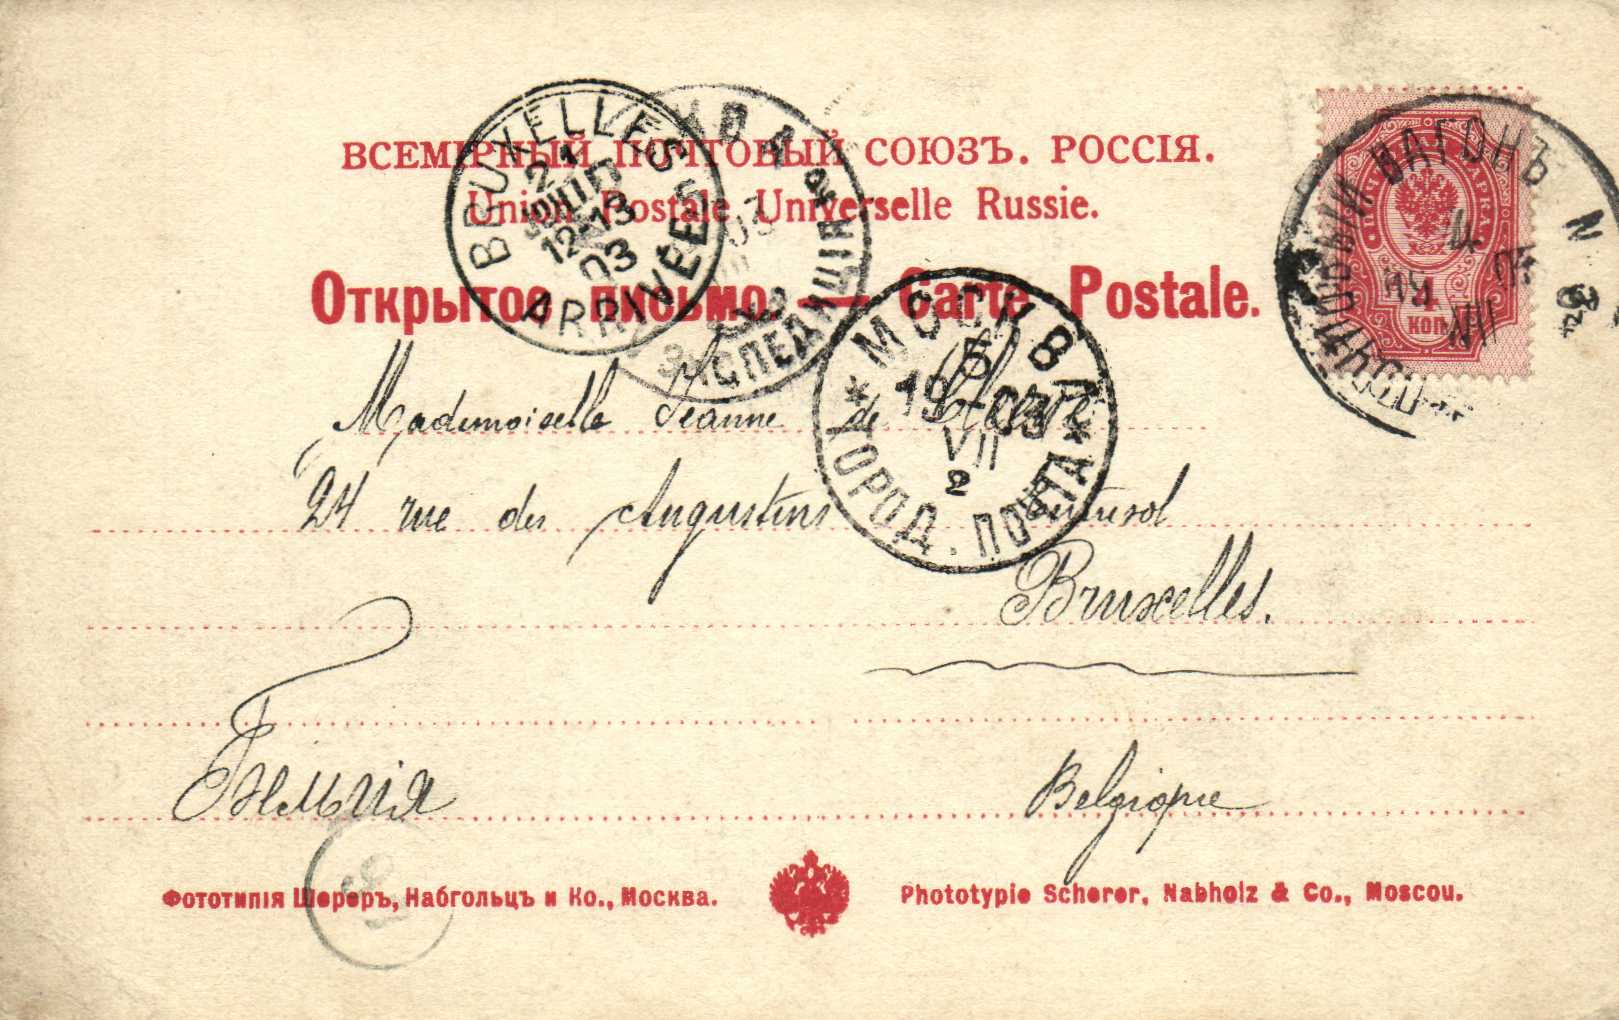 ВСЕМІРНЫЙ ПОЧТОВЫЙ СОЮЗЪ. РОССІЯ.
Union Postale Universelle Russie.
Открытое письмо. — Carte Postale.
BRUXELLES
21
12-13
03
ARRIVÉES
ЭКСПЕДИЦІЯ
03
МОСКВА
5
19 03
VII
2
ГОРОД. ПОЧТА
ПОЧТОВЫЙ ВАГОНЪ N
4
VII
МАРКА
4
КОП
Mademoiselle Jeanne de
24 rue des Augustins
Bruxelles.
Бельгія
Belgique
Фототипія Шереръ, Набгольцъ и Ко., Москва.
Phototypie Scherer, Nabholz & Co., Moscou.